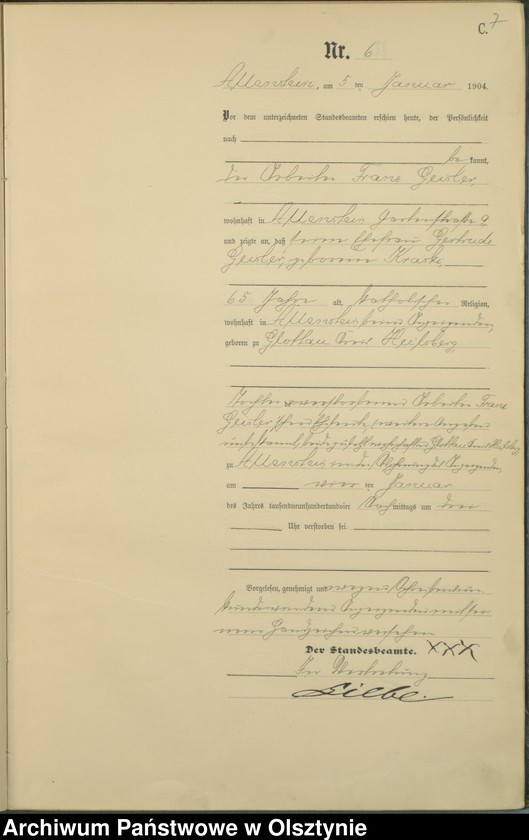 C. 7
Nr. 6
Allenstein, am 5 ten Januar 1904.
Vor dem unterzeichneten Standesbeamten erschien heute, der Persönlichkeit
nach
be kannt,
der Arbeiter Franz Geisler,
wohnhaft in Allenstein Gartenstraße 9
und zeigte an, daß seine Ehefrau Gertrude
Geisler, geborene
65 Jahre alt, katholischer Religion,
wohnhaft in Allenstein beim Anzeigenden,
geboren zu Glottau Kreis Heilsberg,
Tochter Franz
Geisler
unbekannt, Glottau Kreis Heilsberg
zu Allenstein in der Wohnung des Anzeigenden,
am vier ten Januar
des Jahres tausendneunhundertundvier Nachmittags um drei
Uhr verstorben sei.
Vorgelesen, genehmigt und wegen Schreibensun-
kunde von dem Anzeigenden mit sei-
nem Handzeichen versehen
Der Standesbeamte. XXX
In Vertretung